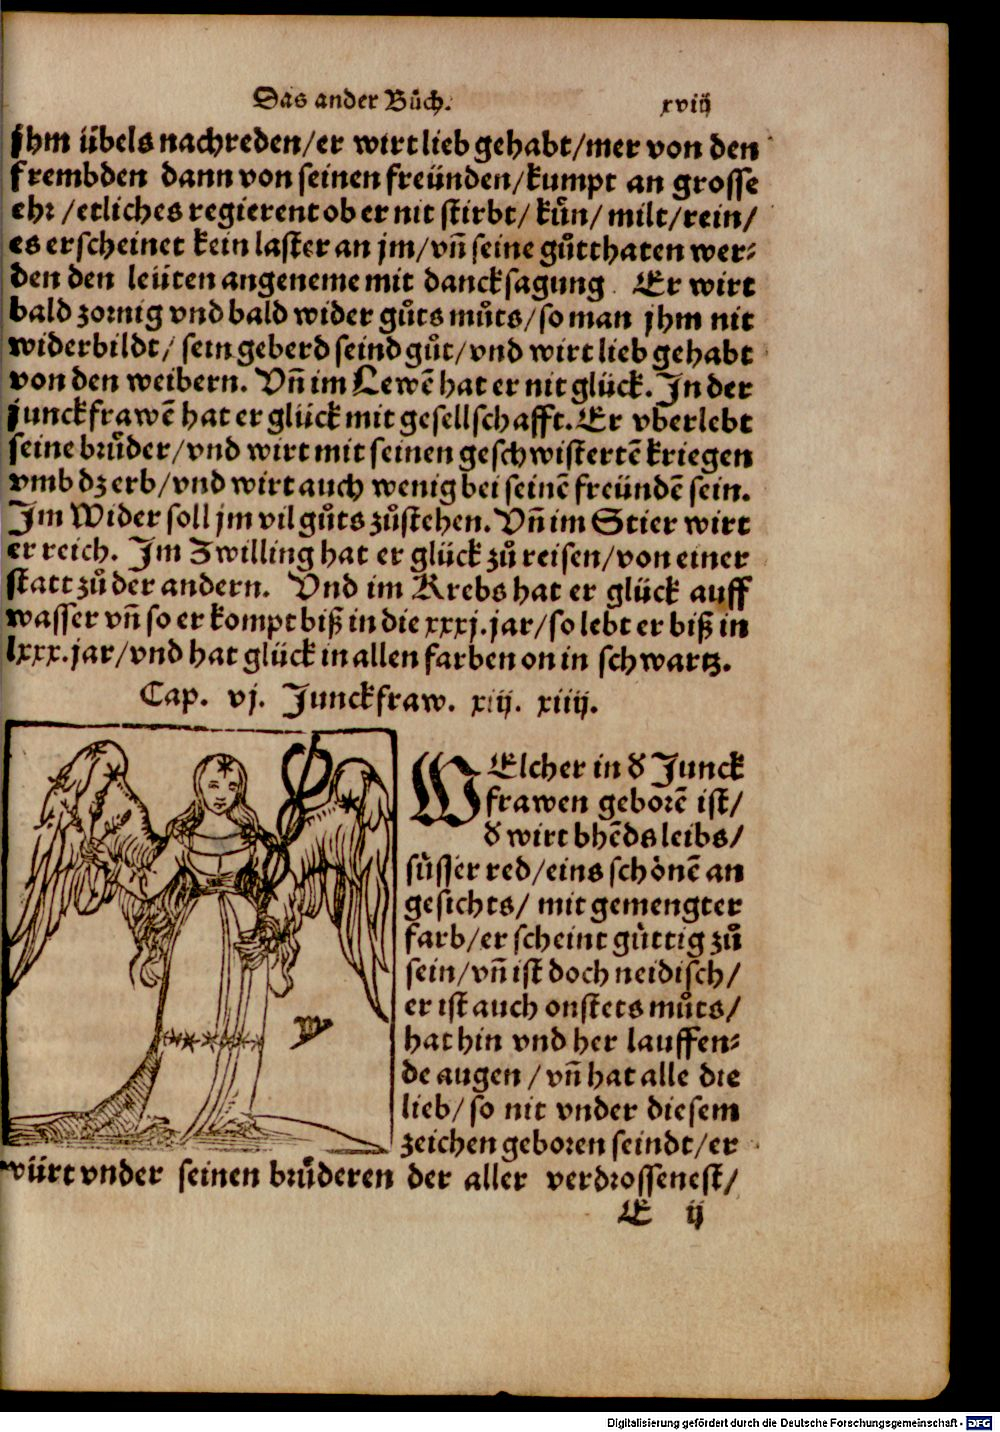 Das ander Bůch. xviij
jhm übels nachreden/er wirt lieb gehabt/mer von den
frembden dann von seinen freünden/kumpt an grosse
ehr/etliches regierent ob er nit stirbt/kün/milt/rein/
es erscheinet kein laster an jm/vñ seine gůtthaten wer⸗
den den leüten angeneme mit dancksagung. Er wirt
bald zornig vnd bald wider gůts můts/so man jhm nit
widerbildt/sein geberd seind gůt/vnd wirt lieb gehabt
von den weibern. Vñ im Lewẽ hat er nit glück. In der
junckfrawẽ hat er glück mit gesellschafft. Er vberlebt
seine brůder/vnd wirt mit seinen geschwistertẽ kriegen
vmb dz erb/vnd wirt auch wenig bei seinẽ freündẽ sein.
Im Wider soll jm vil gůts zůstehen. Vñ im Stier wirt
er reich. Im Zwilling hat er glück zů reisen/von einer
statt zů der andern. Vnd im Krebs hat er glück auff
wasser vñ so er kompt biß in die xxxj. jar/so lebt er biß in
lxxx. jar/vnd hat glück in allen farben on in schwartz.
Cap. vj. Junckfraw. xiij. xiiij.
WElcher in d Junck
frawen geborẽ ist/
d wirt bhẽds leibs/
süsser red/eins schönẽ an
gesichts/mit gemengter
farb/er scheint güttig zů
sein/vñ ist doch neidisch/
er ist auch onstets můts/
hat hin vnd her lauffen⸗
de augen/vñ hat alle die
lieb/so nit vnder diesem
zeichen geboren seindt/er
würt vnder seinen brůderen der aller verdrossenest/
E ij
♍
Digitalisierung gefördert durch die Deutsche Forschungsgemeinschaft - DFG